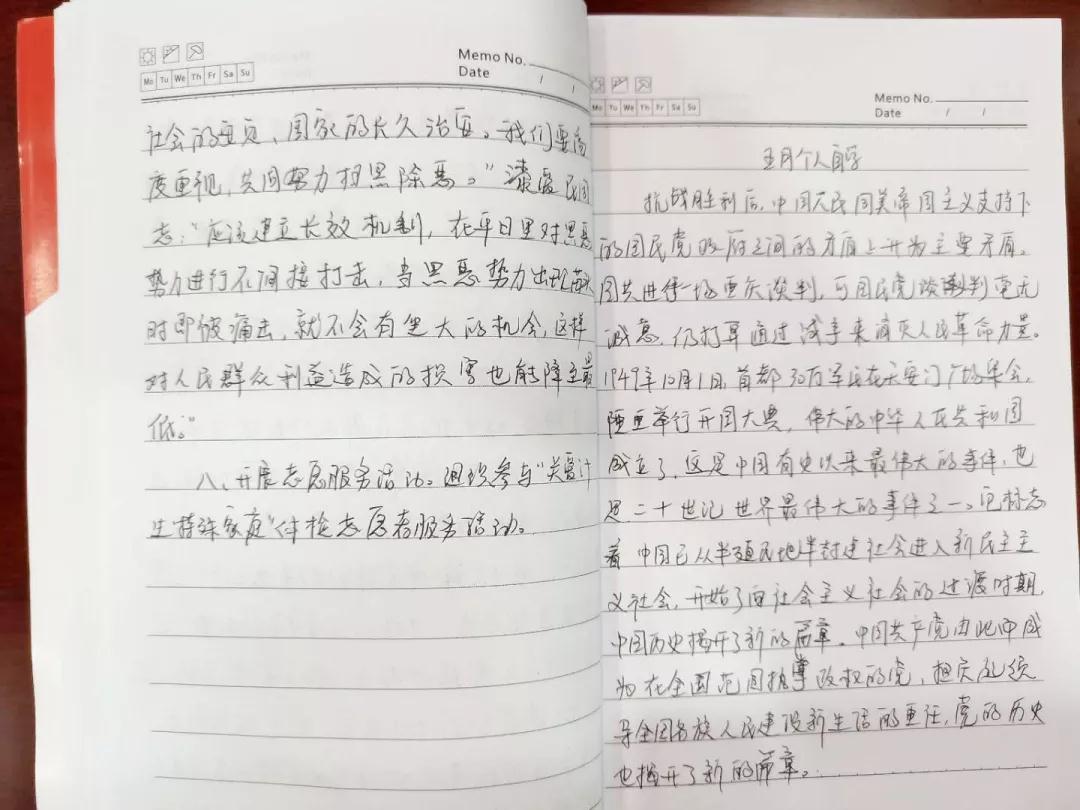 Memo No.
Mo Tu We Th Fr Sa Su
Date / /
社会的安定、国家的长久治安。我们要高
度重视,共同努力扫黑除恶。"漆爱民同
志:"应该建立长效机制,在平日里对黑恶
势力进行不间接打击,当黑恶势力出现苗头
时即被痛击,就不会有坐大的机会,这样
对人民群众利益造成的损害也能降至最
低。"
八、开展志愿服务活动。组织参与"关爱计
生特殊家庭"体检志愿者服务活动。
Memo No.
Mo Tu We Th Fr Sa Su
Date / /
五月个人自学
抗战胜利后,中国人民同美帝国主义支持下
的国民党政府之间的矛盾上升为主要矛盾。
国共进行一场重庆谈判,可国民党谈判毫无
诚意,仍打算通过战争来消灭人民革命力量。
1949年10月1日,首都30万军民在天安门广场集会,
隆重举行开国大典,伟大的中华人民共和国
成立了,这是中国有史以来最伟大的事件,也
是二十世纪世界最伟大的事件之一。它标志
着中国已从半殖民地半封建社会进入新民主主
义社会,开始了向社会主义社会的过渡时期,
中国历史揭开了新的篇章。中国共产党由此中成
为在全国范围执掌政权的党,担庆起领
导全国各族人民建设新生活的重任,党的历史
也揭开了新的篇章。